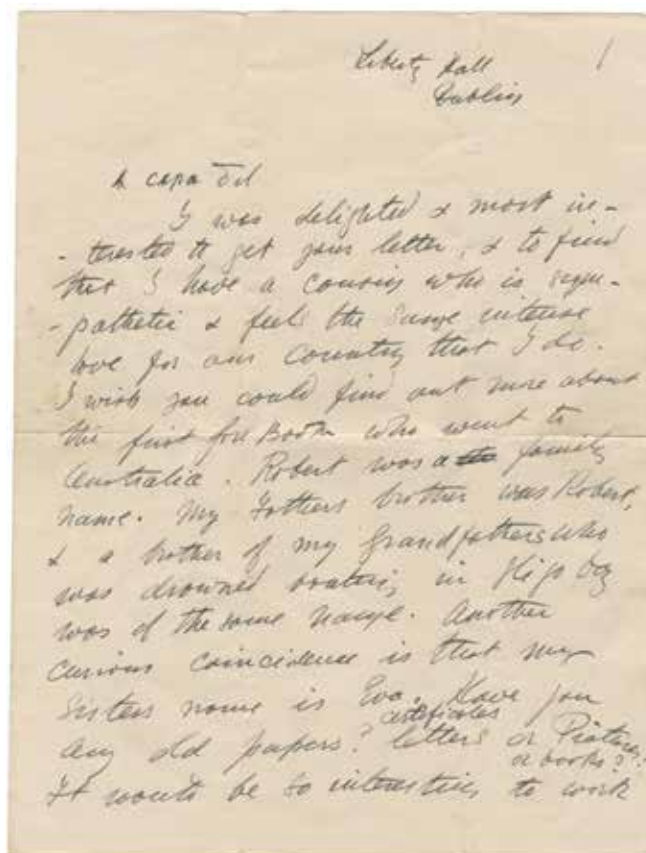 Liberty Hall 1
Dublin
A cara ḋil
I was delighted & most in-
-terested to get your letter, & to find
that I have a cousin who is sym-
-pathetic & feels the same intense
love for our country that I do.
I wish you could find out more about
the first Gore Booth who went to
Australia. Robert was a family
name. My Fathers brother was Robert,
& a brother of my Grandfathers who
was drowned boating in Sligo bay
was of the same name. Another
curious coincidence is that my
Sisters name is Eva. Have you
certificates
any old papers? letters or Pictures
or books?
It would be so interesting to work